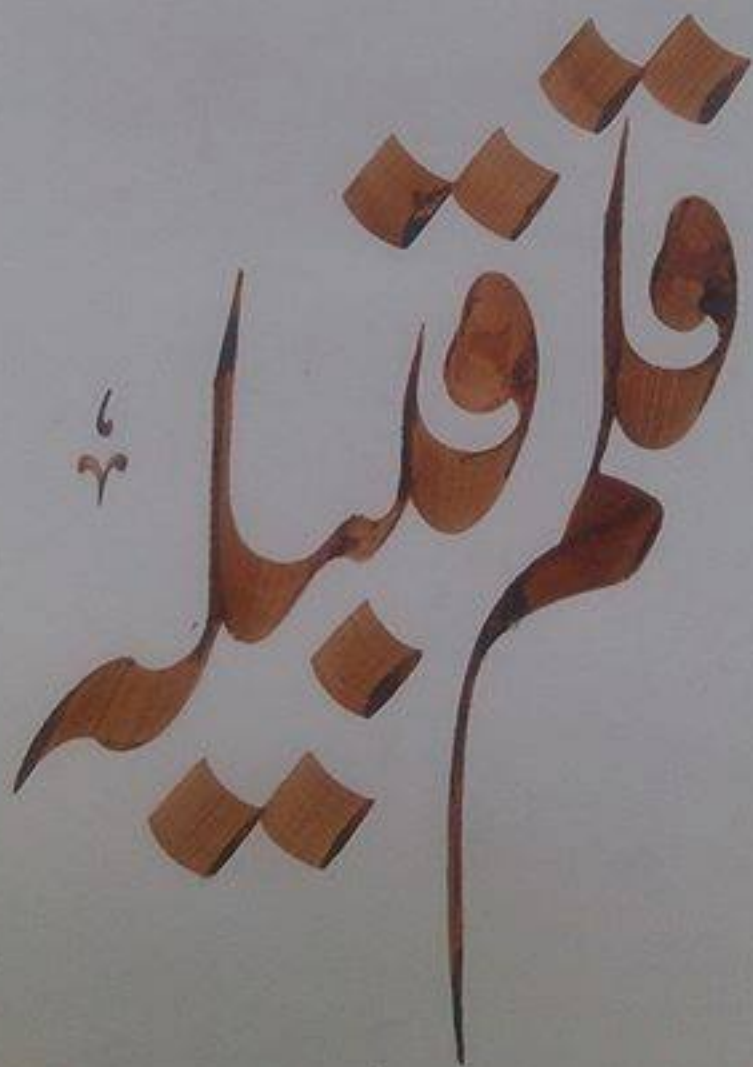 قلم قبیله